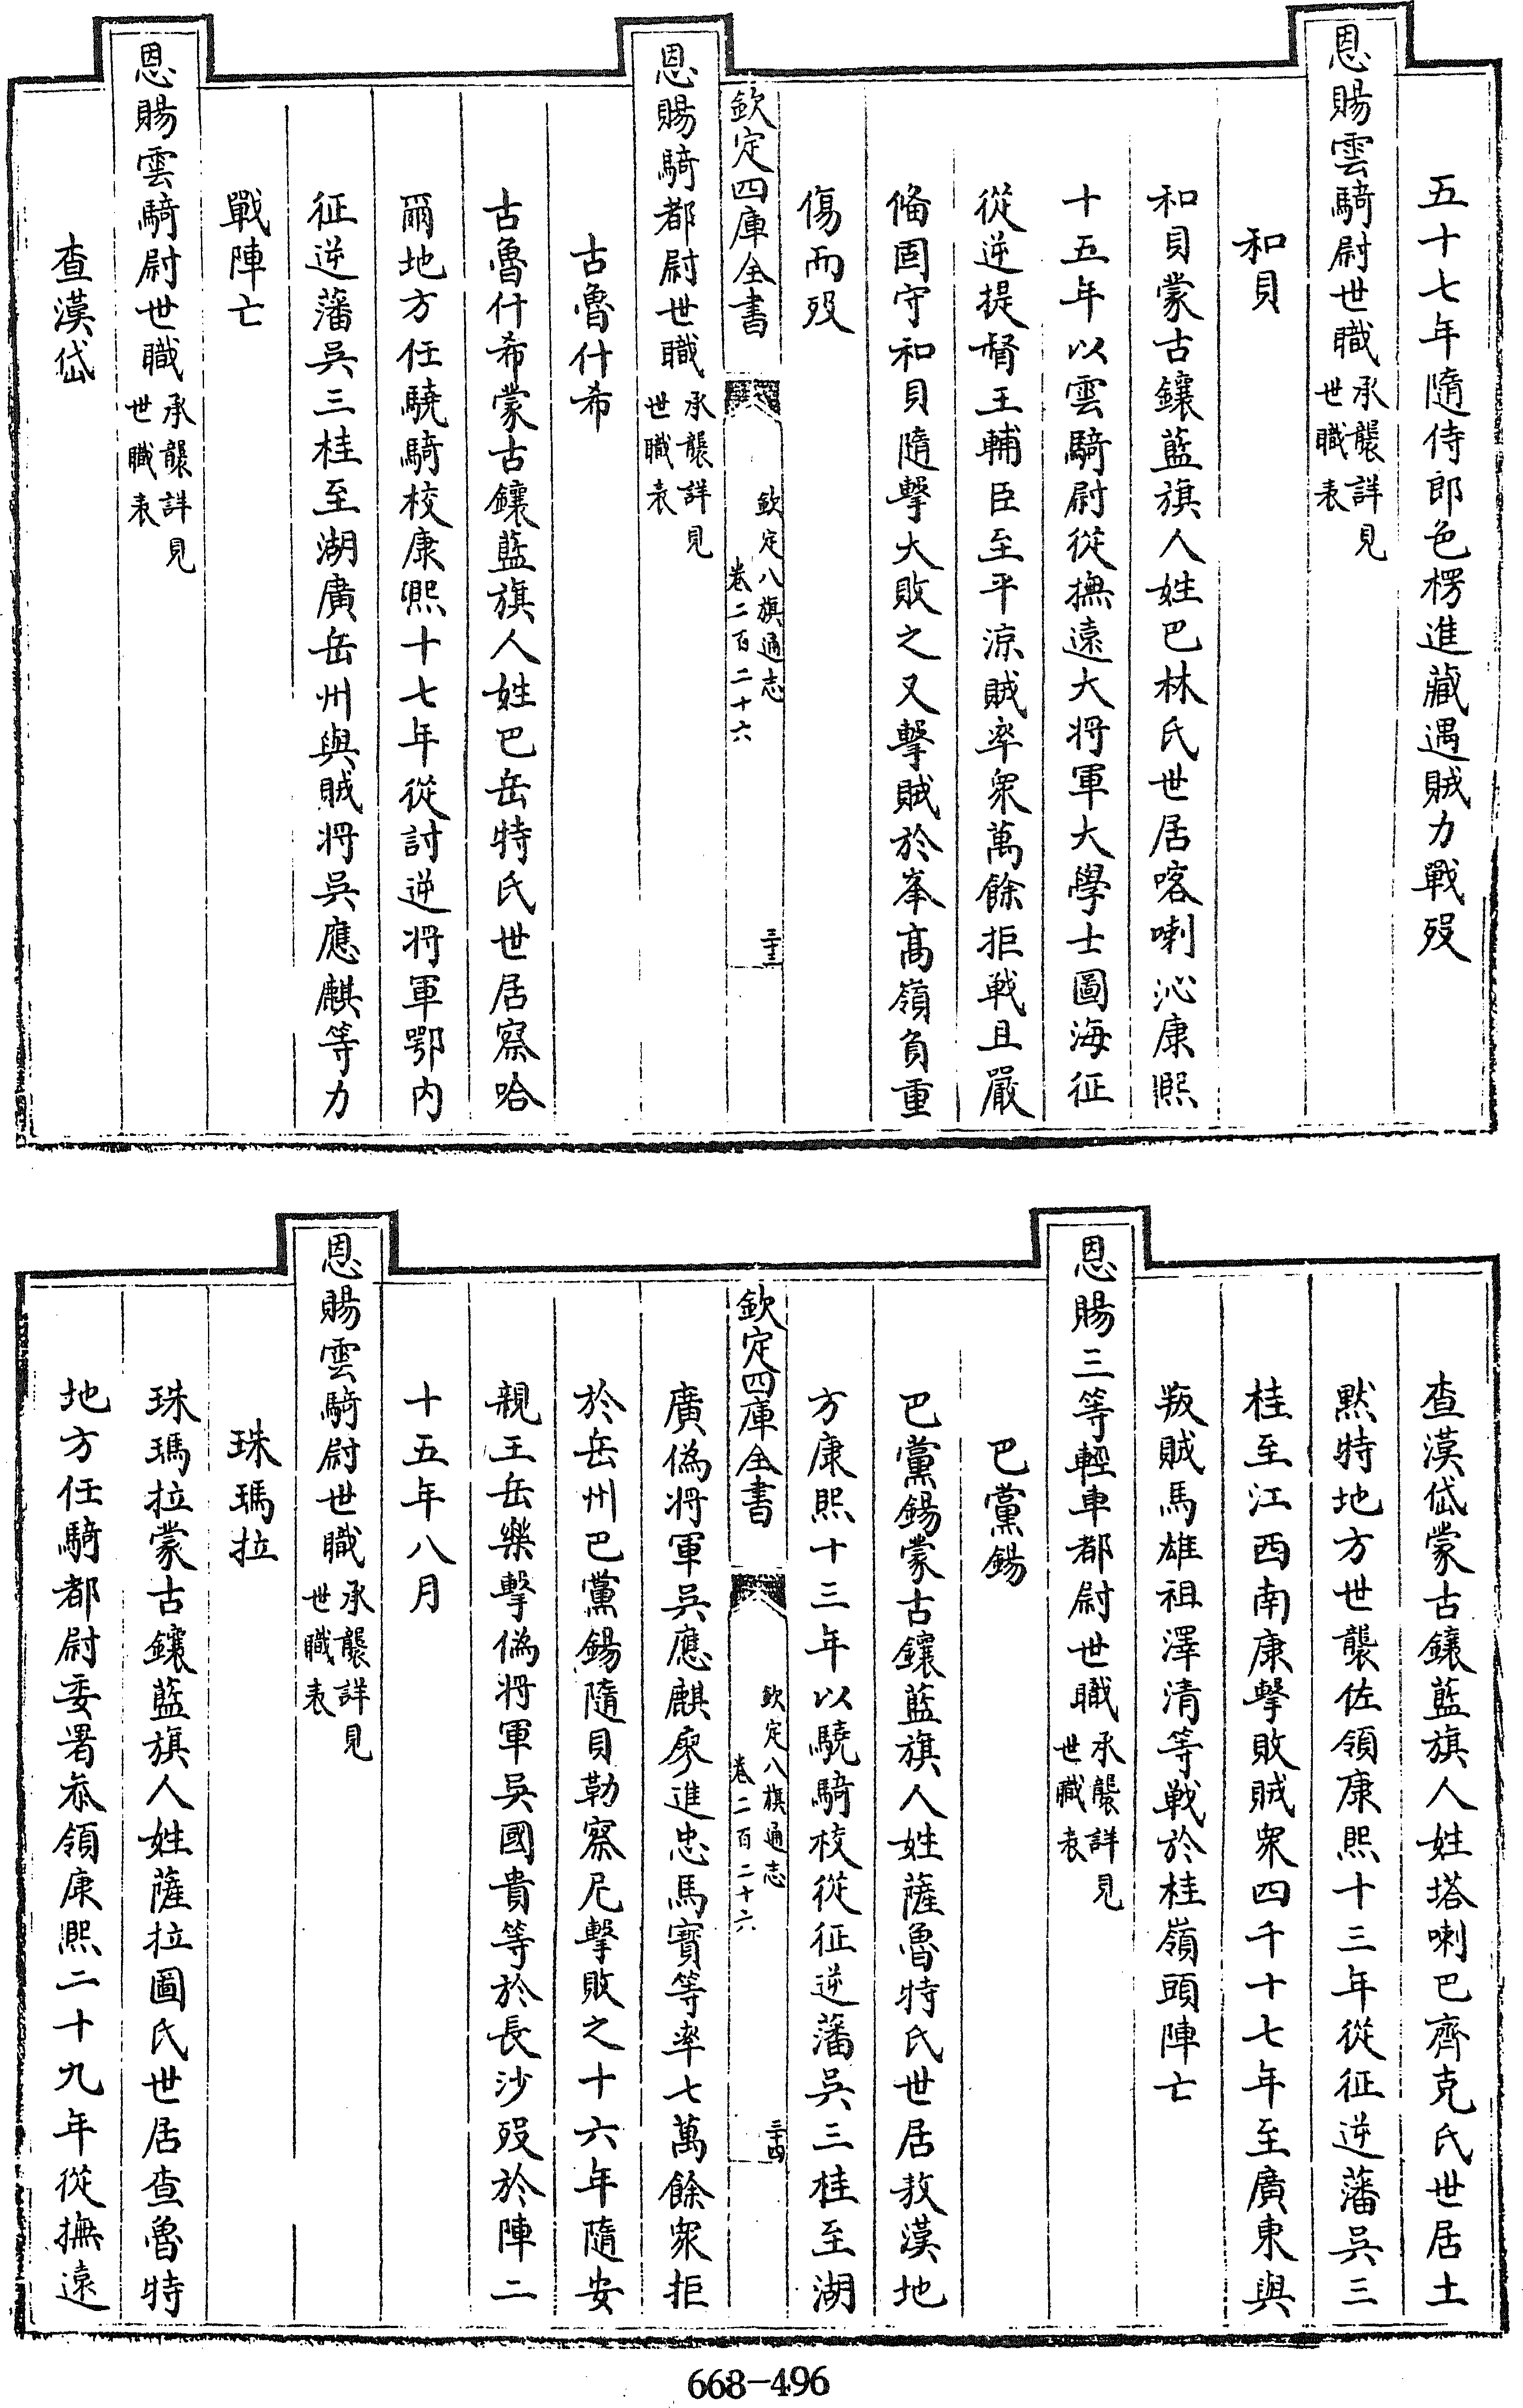 五十七年隨侍郎色楞進藏遇賊力戰歿
恩賜雲騎尉世職承襲詳見世職表
和貝
和貝蒙古鑲藍旗人姓巴林氏世居喀喇沁康熙
十五年以雲騎尉從撫遠大將軍大學士圖海征
從逆提督王輔臣至平涼賊率衆萬餘拒戰且嚴
偹固守和貝隨擊大敗之又擊賊於峯髙嶺負重
傷而歿
欽定四庫全書
欽定八旗通志
卷二百二十六
三十三
恩賜騎都尉世職承襲詳見世職表
古魯什希
古魯什希蒙古鑲藍旗人姓巴岳特氏世居察哈
爾地方任驍騎校康熙十七年從討逆將軍鄂内
征逆藩吳三桂至湖廣岳州與賊將吳應麒等力
戰陣亡
恩賜雲騎尉世職承襲詳見世職表
查漢岱
查漢岱蒙古鑲藍旗人姓塔喇巴齊克氏世居土
黙特地方世襲佐領康熙十三年從征逆藩吳三
桂至江西南康擊敗賊衆四千十七年至廣東與
叛賊馬雄祖澤清等戰於桂嶺頭陣亡
恩賜三等輕車都尉世職承襲詳見世職表
巴黨錫
巴黨錫蒙古鑲藍旗人姓薩魯特氏世居敖漢地
方康熙十三年以驍騎校從征逆藩吳三桂至湖
欽定四庫全書
欽定八旗通志
卷二百二十六
三十四
廣偽將軍吳應麒廖進忠馬寳等率七萬餘衆拒
於岳州巴黨錫隨貝勒察尼擊敗之十六年隨安
親王岳樂擊偽將軍吳國貴等於長沙歿於陣二
十五年八月
恩賜雲騎尉世職承襲詳見世職表
珠瑪拉
珠瑪拉蒙古鑲藍旗人姓薩拉圖氏世居查魯特
地方任騎都尉委署叅領康熙二十九年從撫遠
668-496